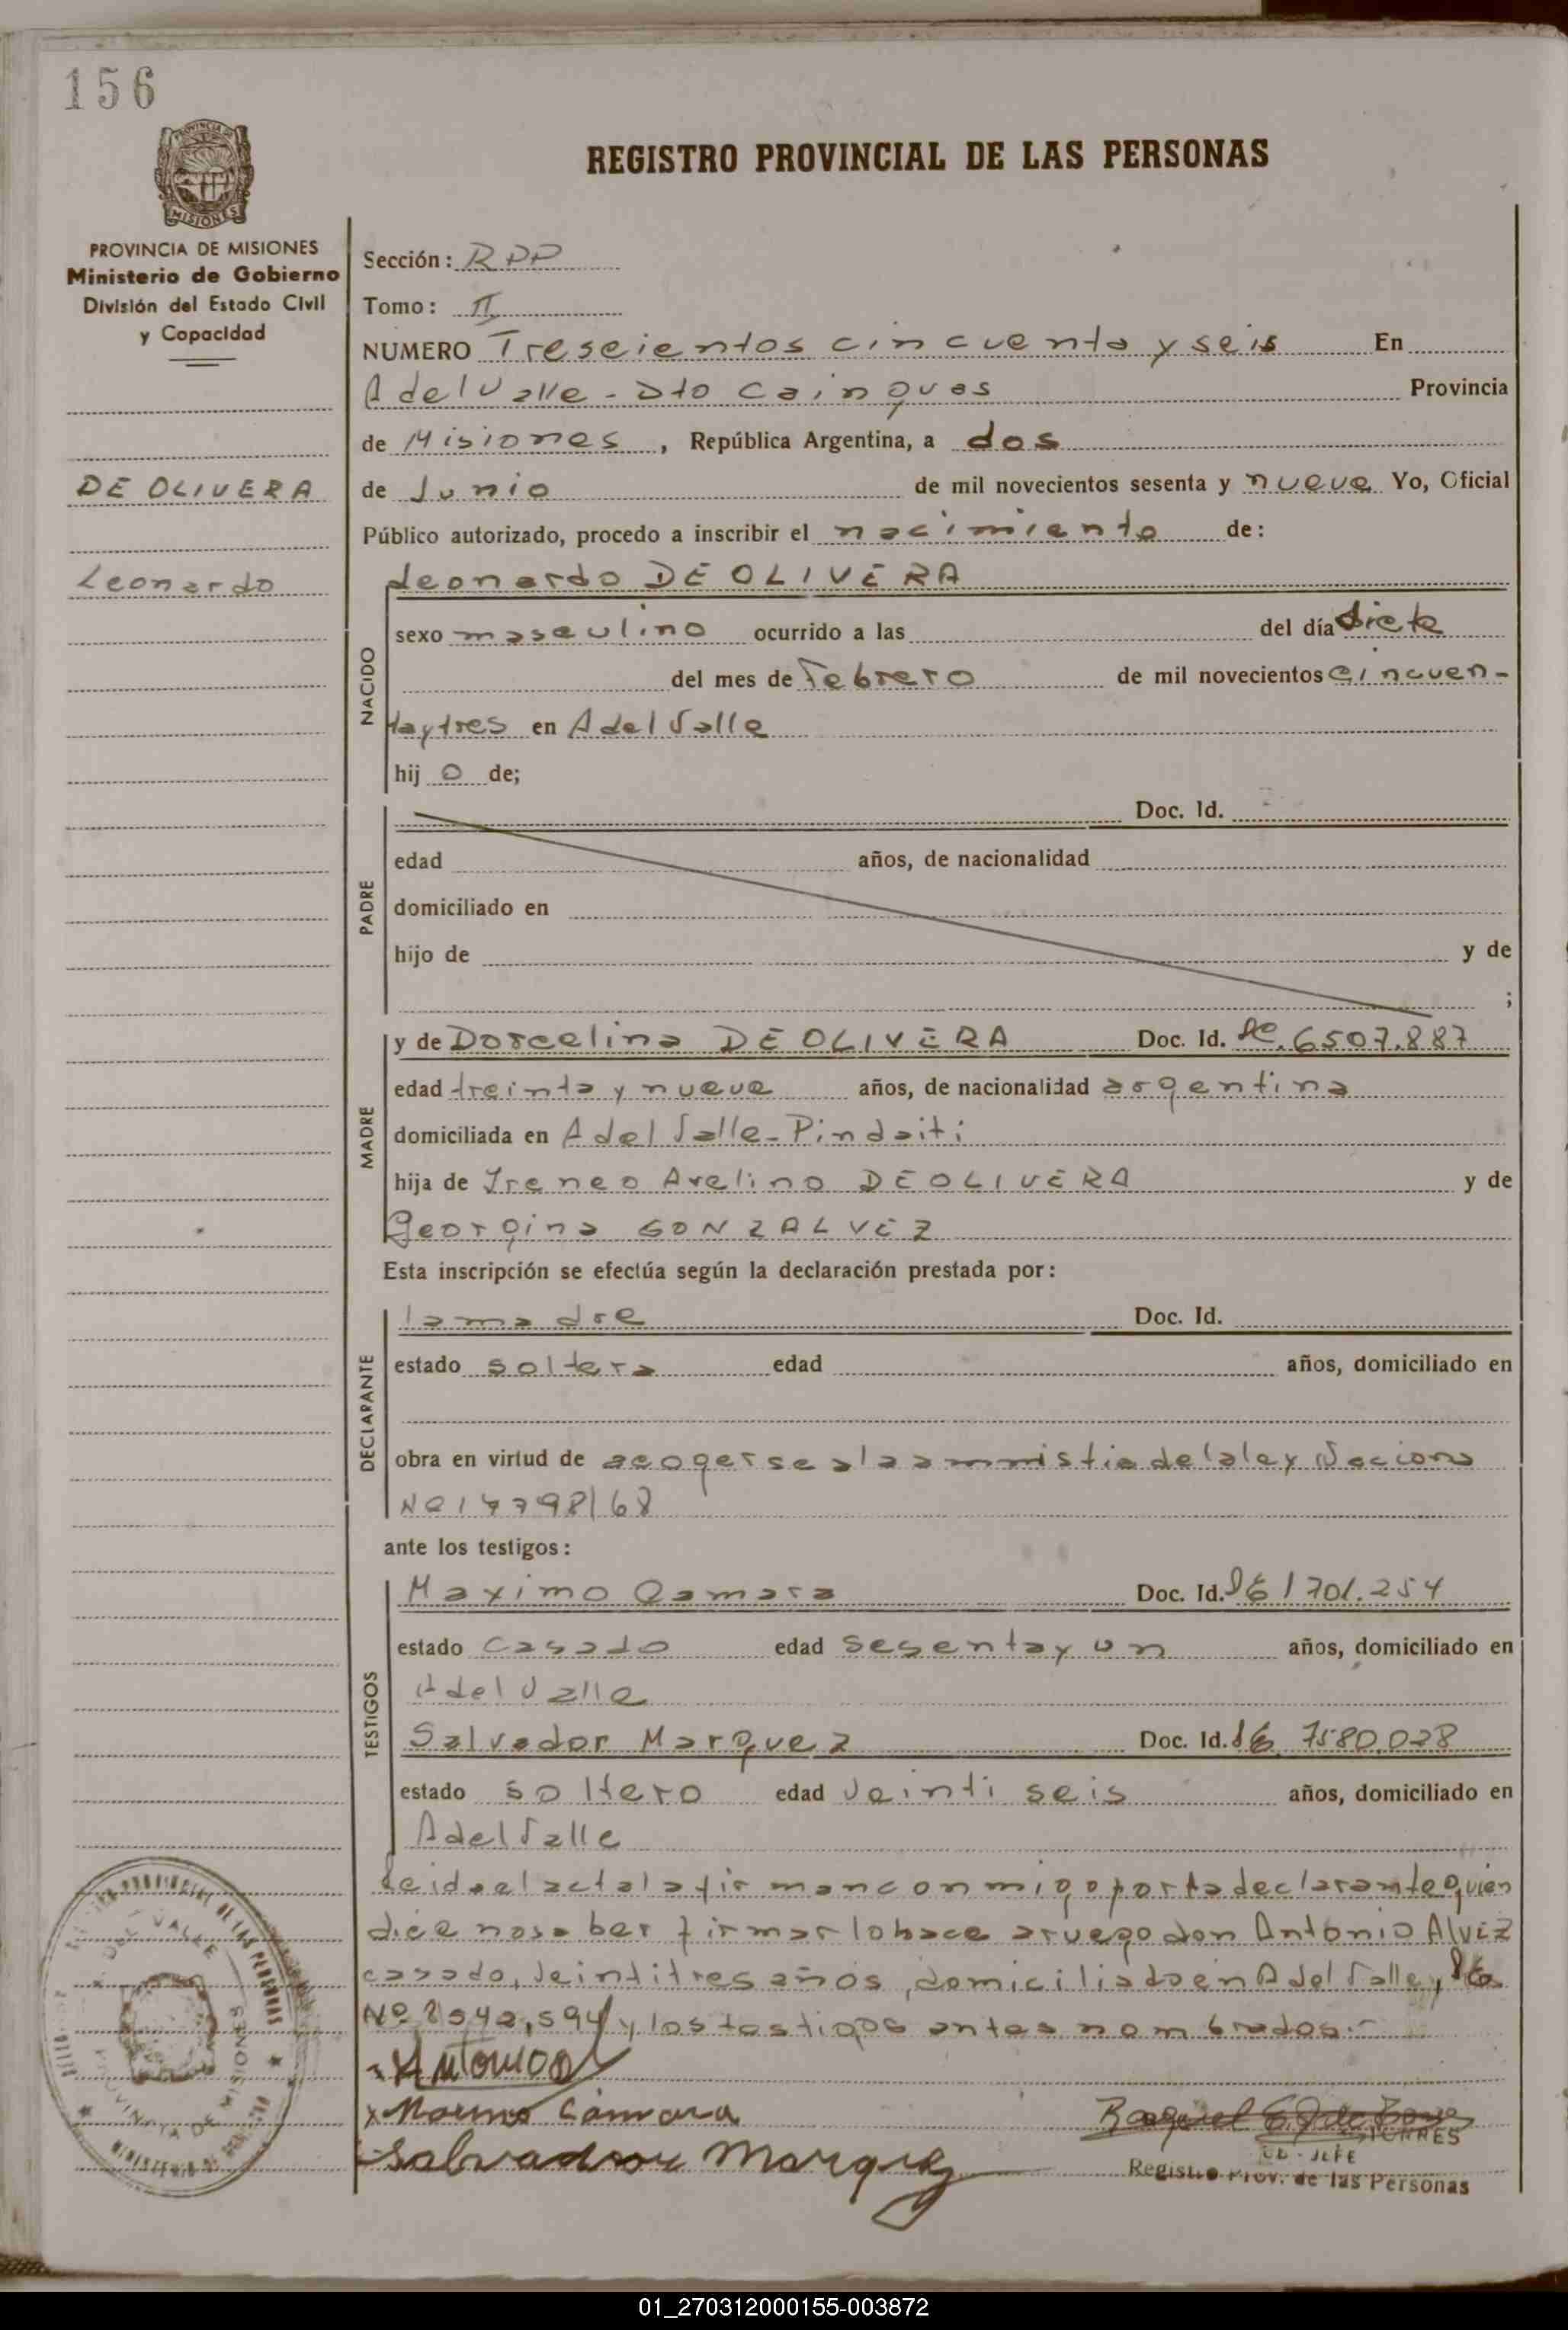 156
PROVINCIA DE MISIONES
Ministerio de Gobierno
División del Estado Civil
y Capacidad
DE OLIVERA
Leonardo
REGISTRO PROVINCIAL DE LAS PERSONAS
Sección: RPP
Tomo: II
NUMERO Treseientos cincuenta y seis En
A del Valle - Dto Cainguas Provincia
de Misiones, República Argentina, a dos
de Junio de mil novecientos sesenta y nueve Yo, Oficial
Público autorizado, procedo a inscribir el nacimiento de:
Leonardo DE OLIVERA
NACIDO
sexo masculino ocurrido a las del día siete
del mes de Febrero de mil novecientos cincuen-
taytres en A del Valle
hij o de;
PADRE
Doc. Id.
edad años, de nacionalidad
domiciliado en
hijo de y de
;
MADRE
y de Dorcelina DE OLIVERA Doc. Id. 6507.887
edad treinta y nueve años, de nacionalidad argentina
domiciliada en A del Valle - Pindaiti
hija de Ireneo Avelino DE OLIVERA y de
Georgina GONZALVEZ
Esta inscripción se efectúa según la declaración prestada por:
DECLARANTE
la madre Doc. Id.
estado soltera edad años, domiciliado en
obra en virtud de acogerse a la ammistia de la ley Naciona
Nº 17798/68
ante los testigos:
TESTIGOS
Maximo Camara Doc. Id. 1701.254
estado casado edad sesentayun años, domiciliado en
A del Valle
Salvador Marquez Doc. Id. 7580.028
estado soltero edad veinti seis años, domiciliado en
A del Valle
Leida el acta la firman conmigo por la declarante quien
dice no saber firmar lo hace a ruego don Antonio Alvez
casado, veintitres años, domiciliado en A del Valle,
Nº 8542,594 y los testigos antes nombrados.-
x Antonio
x Maximo Camara
Salvador Marquez
TORRES
JEFE
Registro Prov. de las Personas
DEL VALLE
01_270312000155-003872